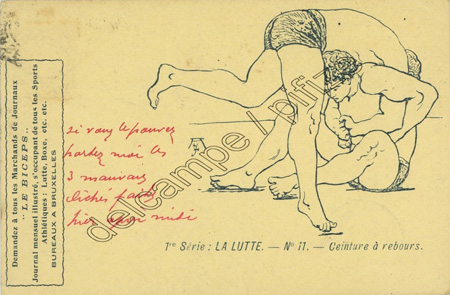 Demandez à tous les Marchands de Journaux
"LE BICEPS"..
Journal mensuel illustré, s'occupant de tous les Sports
Athlétiques : Lutte, Boxe, etc. etc.
BUREAUX A BRUXELLES
si vous le pouvez
portez moi les
3 mauvais
clichés faits
hier midi
delcampe
1re Série: LA LUTTE. — No 11. — Ceinture à rebours.